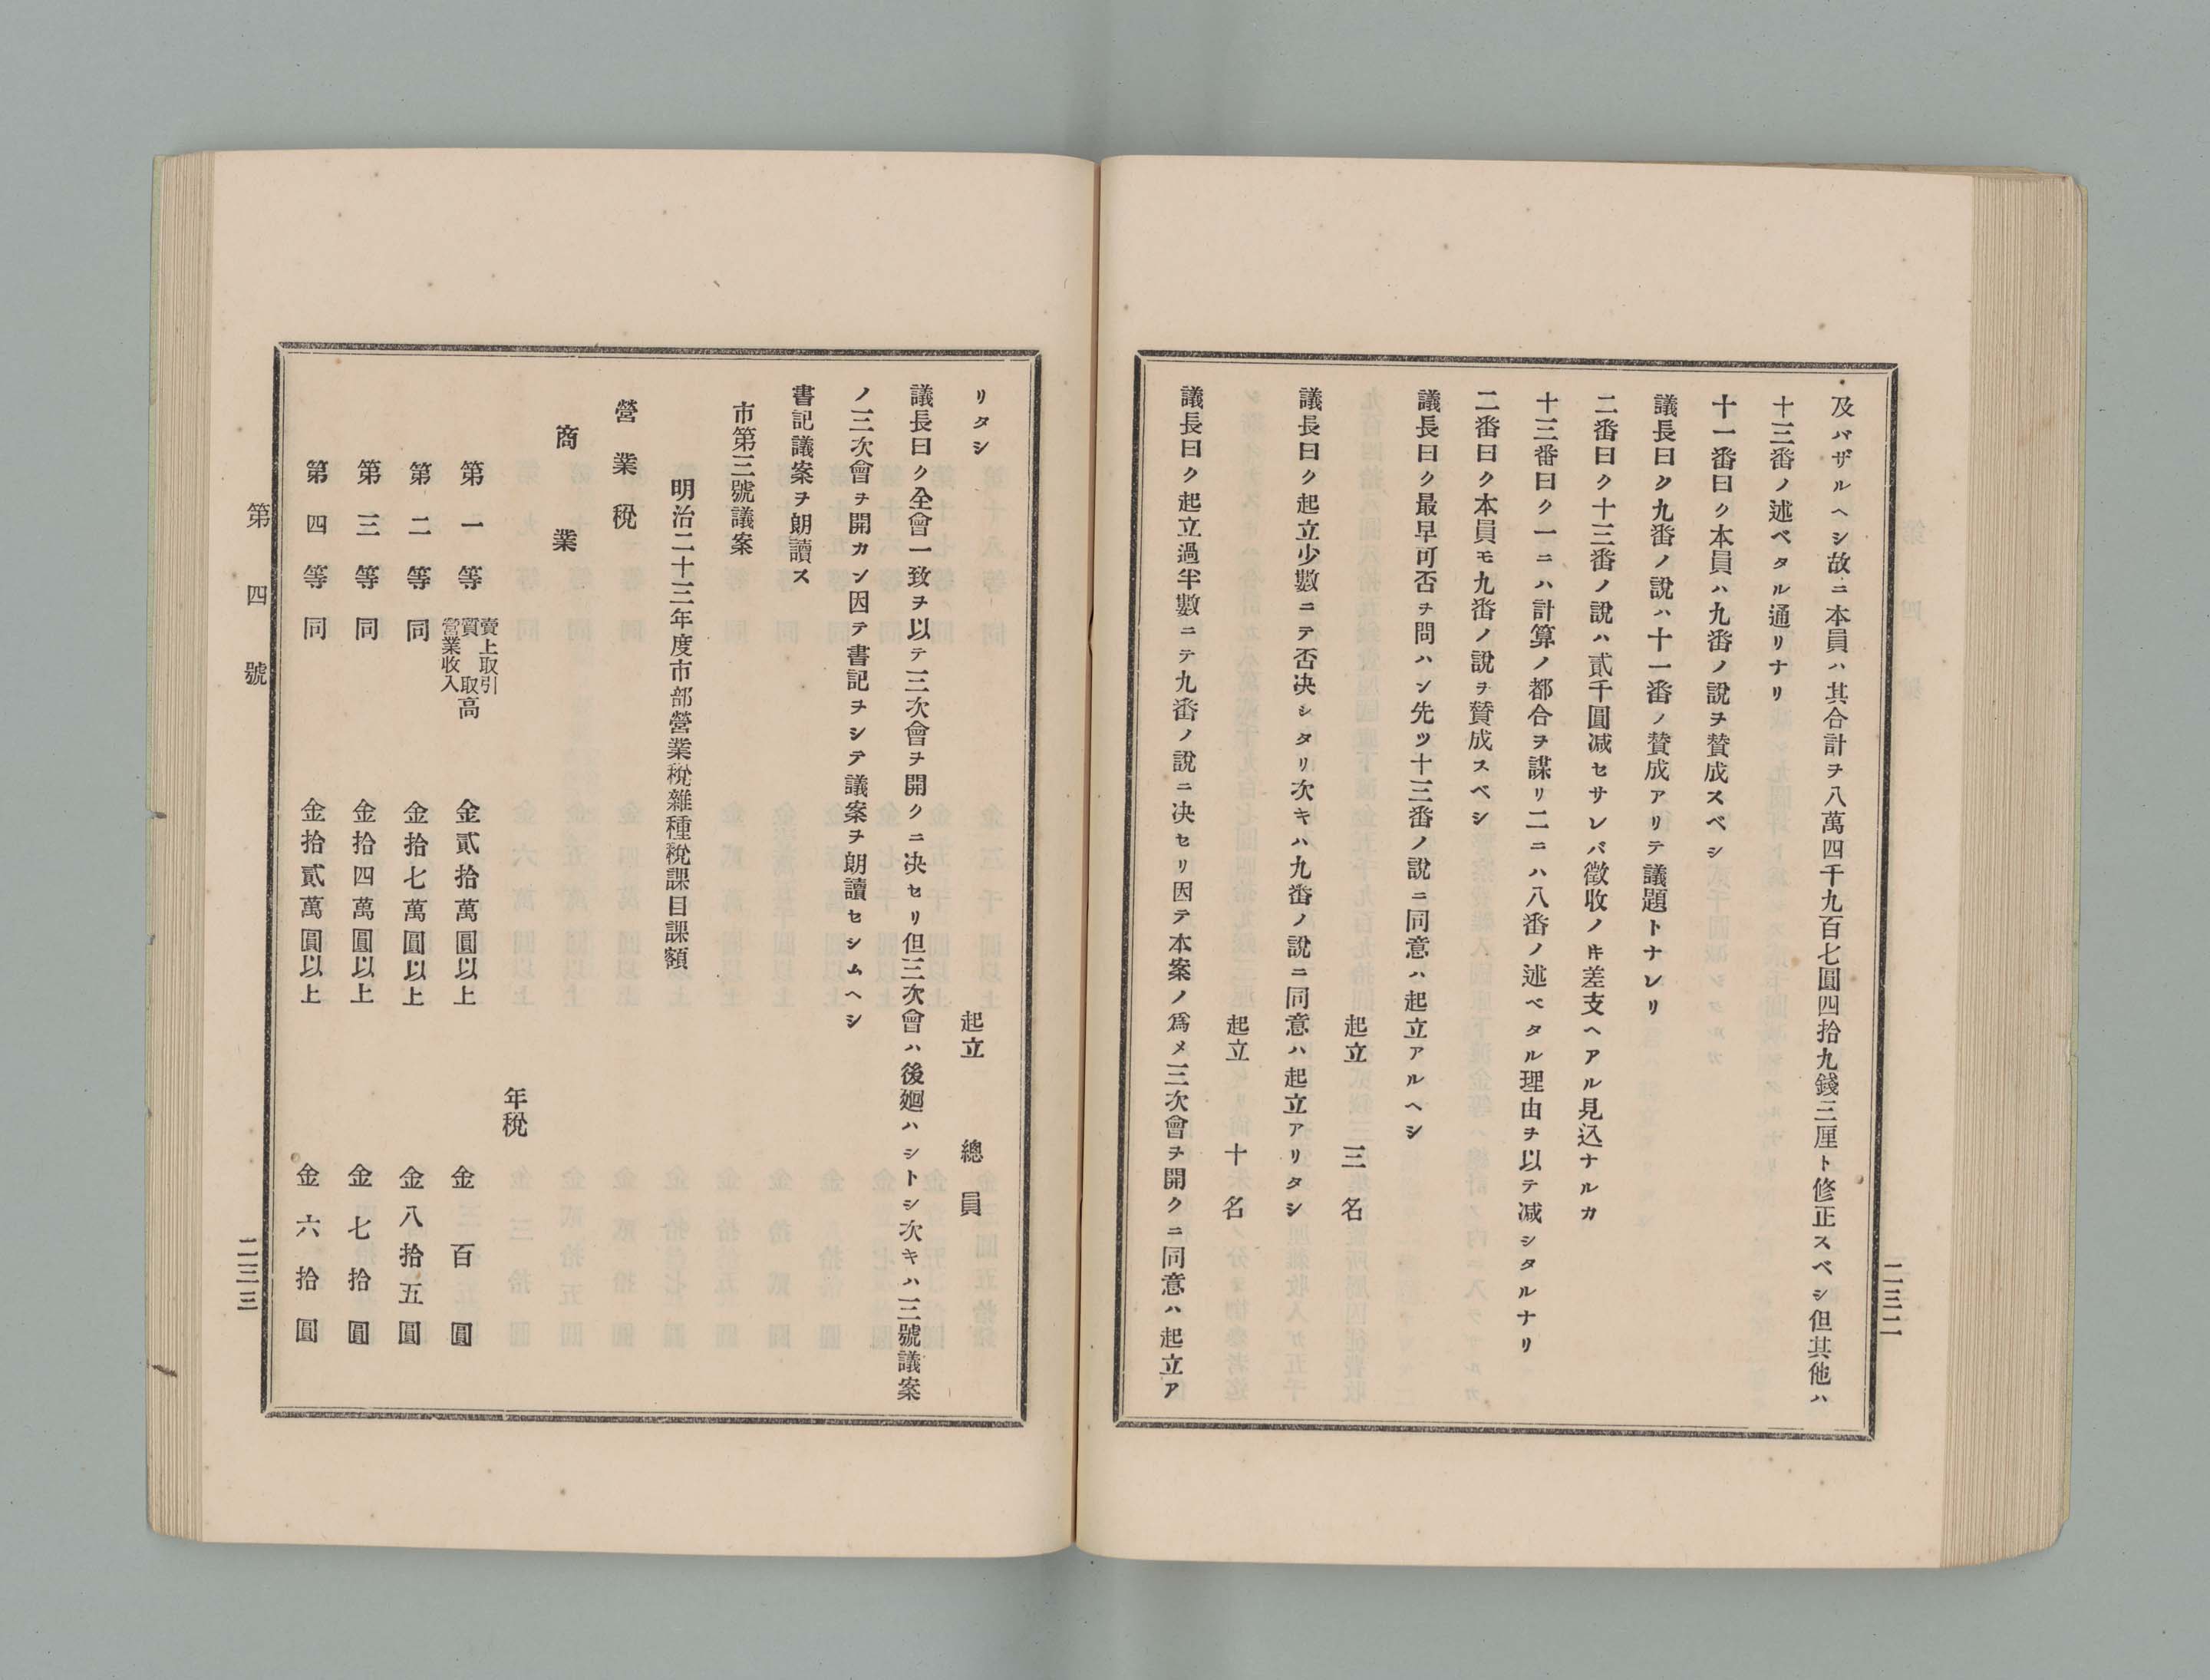 及バザルヘシ故ニ本員ハ其合計ヲ八萬四千九百七圓四拾九錢三厘ト修正スベシ但其他ハ
十三番ノ述ベタル通リナリ
十一番曰ク本員ハ九番ノ說ヲ賛成スベシ
議長曰ク九番ノ說ハ十一番ノ賛成アリテ議題トナレリ
二番曰ク十三番ノ說ハ貳千圓减セサレバ徵收ノ㪽差支ヘアル見込ナルカ
十三番曰ク一ニハ計算ノ都合ヲ謀リ二ニハ八番ノ述ベタル理由ヲ以テ减シタルナリ
二番曰ク本員モ九番ノ說ヲ賛成スベシ
議長曰ク最早可否ヲ問ハン先ツ十三番ノ說ニ同意ハ起立アルヘシ
起立 三名
議長曰ク起立少數ニテ否决シタリ次キハ九番ノ說ニ同意ハ起立アリタシ
起立 十名
議長曰ク起立過半數ニテ九番ノ說ニ决セリ因テ本案ノ爲メ三次會ヲ開クニ同意ハ起立ア
二三二
リタシ
起立 總員
議長曰ク全會一致ヲ以テ三次會ヲ開クニ决セリ但三次會ハ後廻ハシトシ次キハ三號議案
ノ三次會ヲ開カン因テ書記ヲシテ議案ヲ朗讀セシムヘシ
書記議案ヲ朗讀ス
市第三號議案
明治二十三年度市部營業稅雜種稅課目課額
營業稅
商業
年稅
第一等 賣上取引質取高營業收入 金貳拾萬圓以上 金百圓
第二等 同 金拾七萬圓以上 金八拾五圓
第三等 同 金拾四萬圓以上 金七拾圓
第四等 同 金拾貳萬圓以上 金六拾圓
第四號
二三三